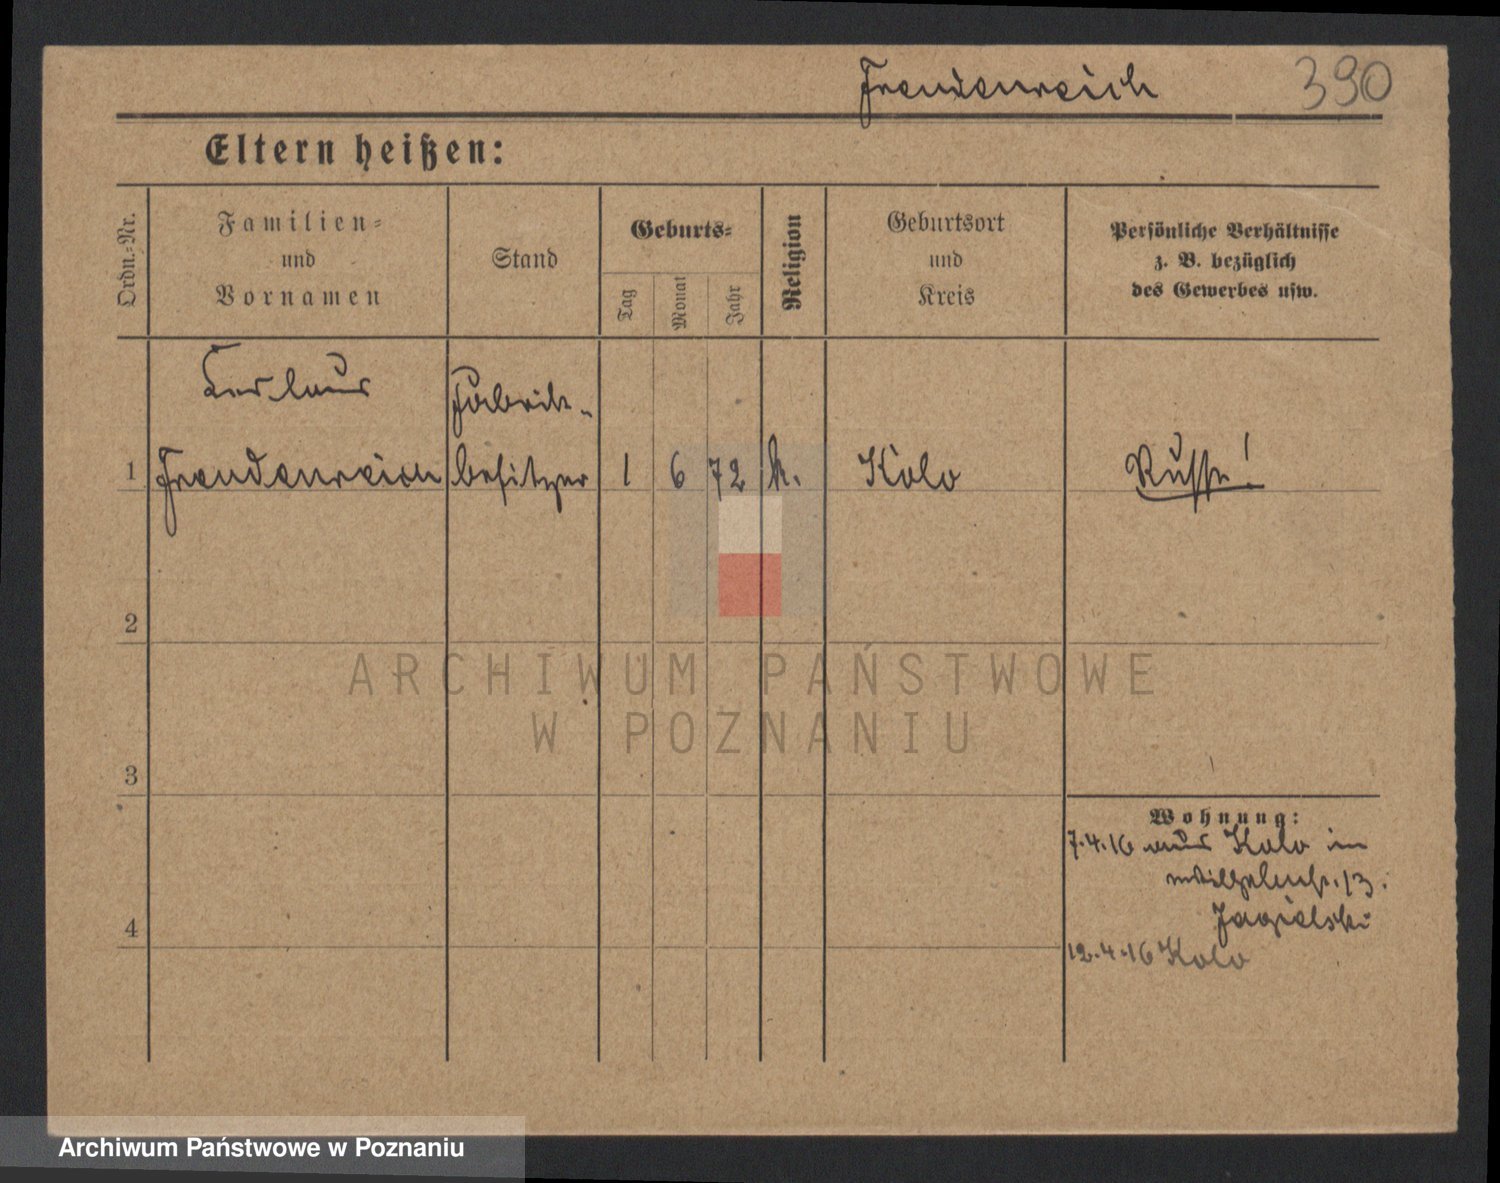 Freudenreich 390
Eltern heißen:
Ordn.-Nr.
Familien-
und
Vornamen
Stand
Geburts-
Tag
Monat
Jahr
Religion
Geburtsort
und
Kreis
Persönliche Verhältnisse
z. B. bezüglich
des Gewerbes usw.
Fabrik-
1 Freudenreich besitzer 1 6 72 k. Kolo Russe!
2
3
4
Wohnung:
7.4.16 aus Kolo in
Wilhelmstr. 13.
Jagielski
12.4.16 Kolo
ARCHIWUM PAŃSTWOWE
W POZNANIU
Archiwum Państwowe w Poznaniu